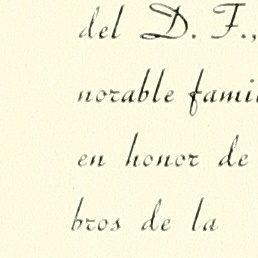 del D. F.,
norable fami
en honor de
bros de la